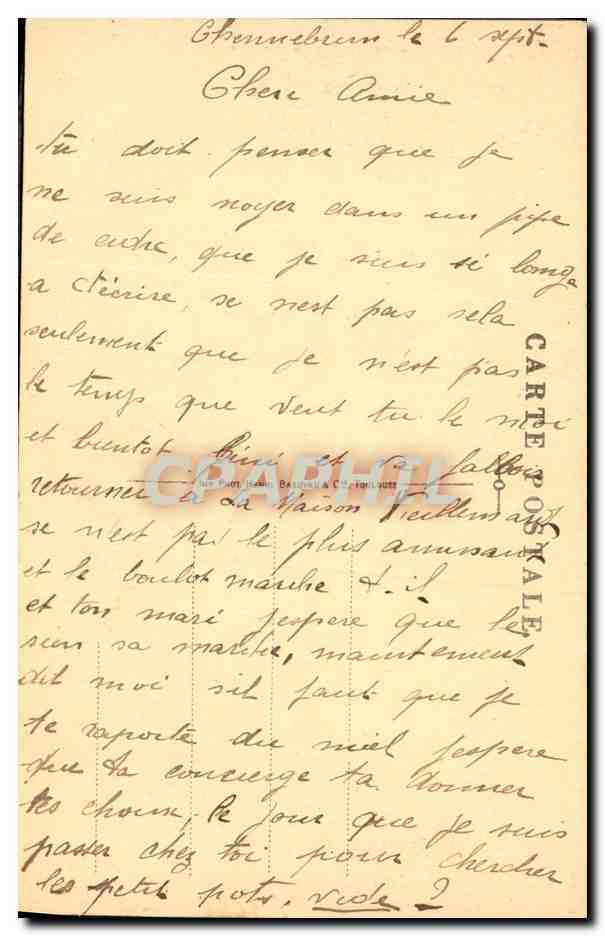 Chennebrun le 6 sept.
Chere Amie
tu doit penser que je
ne suis noyer dans un pipe
de cidre, que je suis si longe
a t'écrire, se nest pas sela
seulement que je n'est pas
le temps que veut tu le moi
et bientot fini et va falloir
Imp. Phot. Henri Basuyau & Cie, Toulouse
retourner à La Maison Vieillemard
se n'est pas le plus amusant
et le boulot marche t-il
et ton mari jespere que le
sien sa marche, maintenant
dit moi sil faut que je
te raporte du miel jespere
que ta concierge ta donner
tes choux, le jour que je suis
passer chez toi pour chercher
les petit pots, vide ?
CARTE POSTALE
CPAPHIL